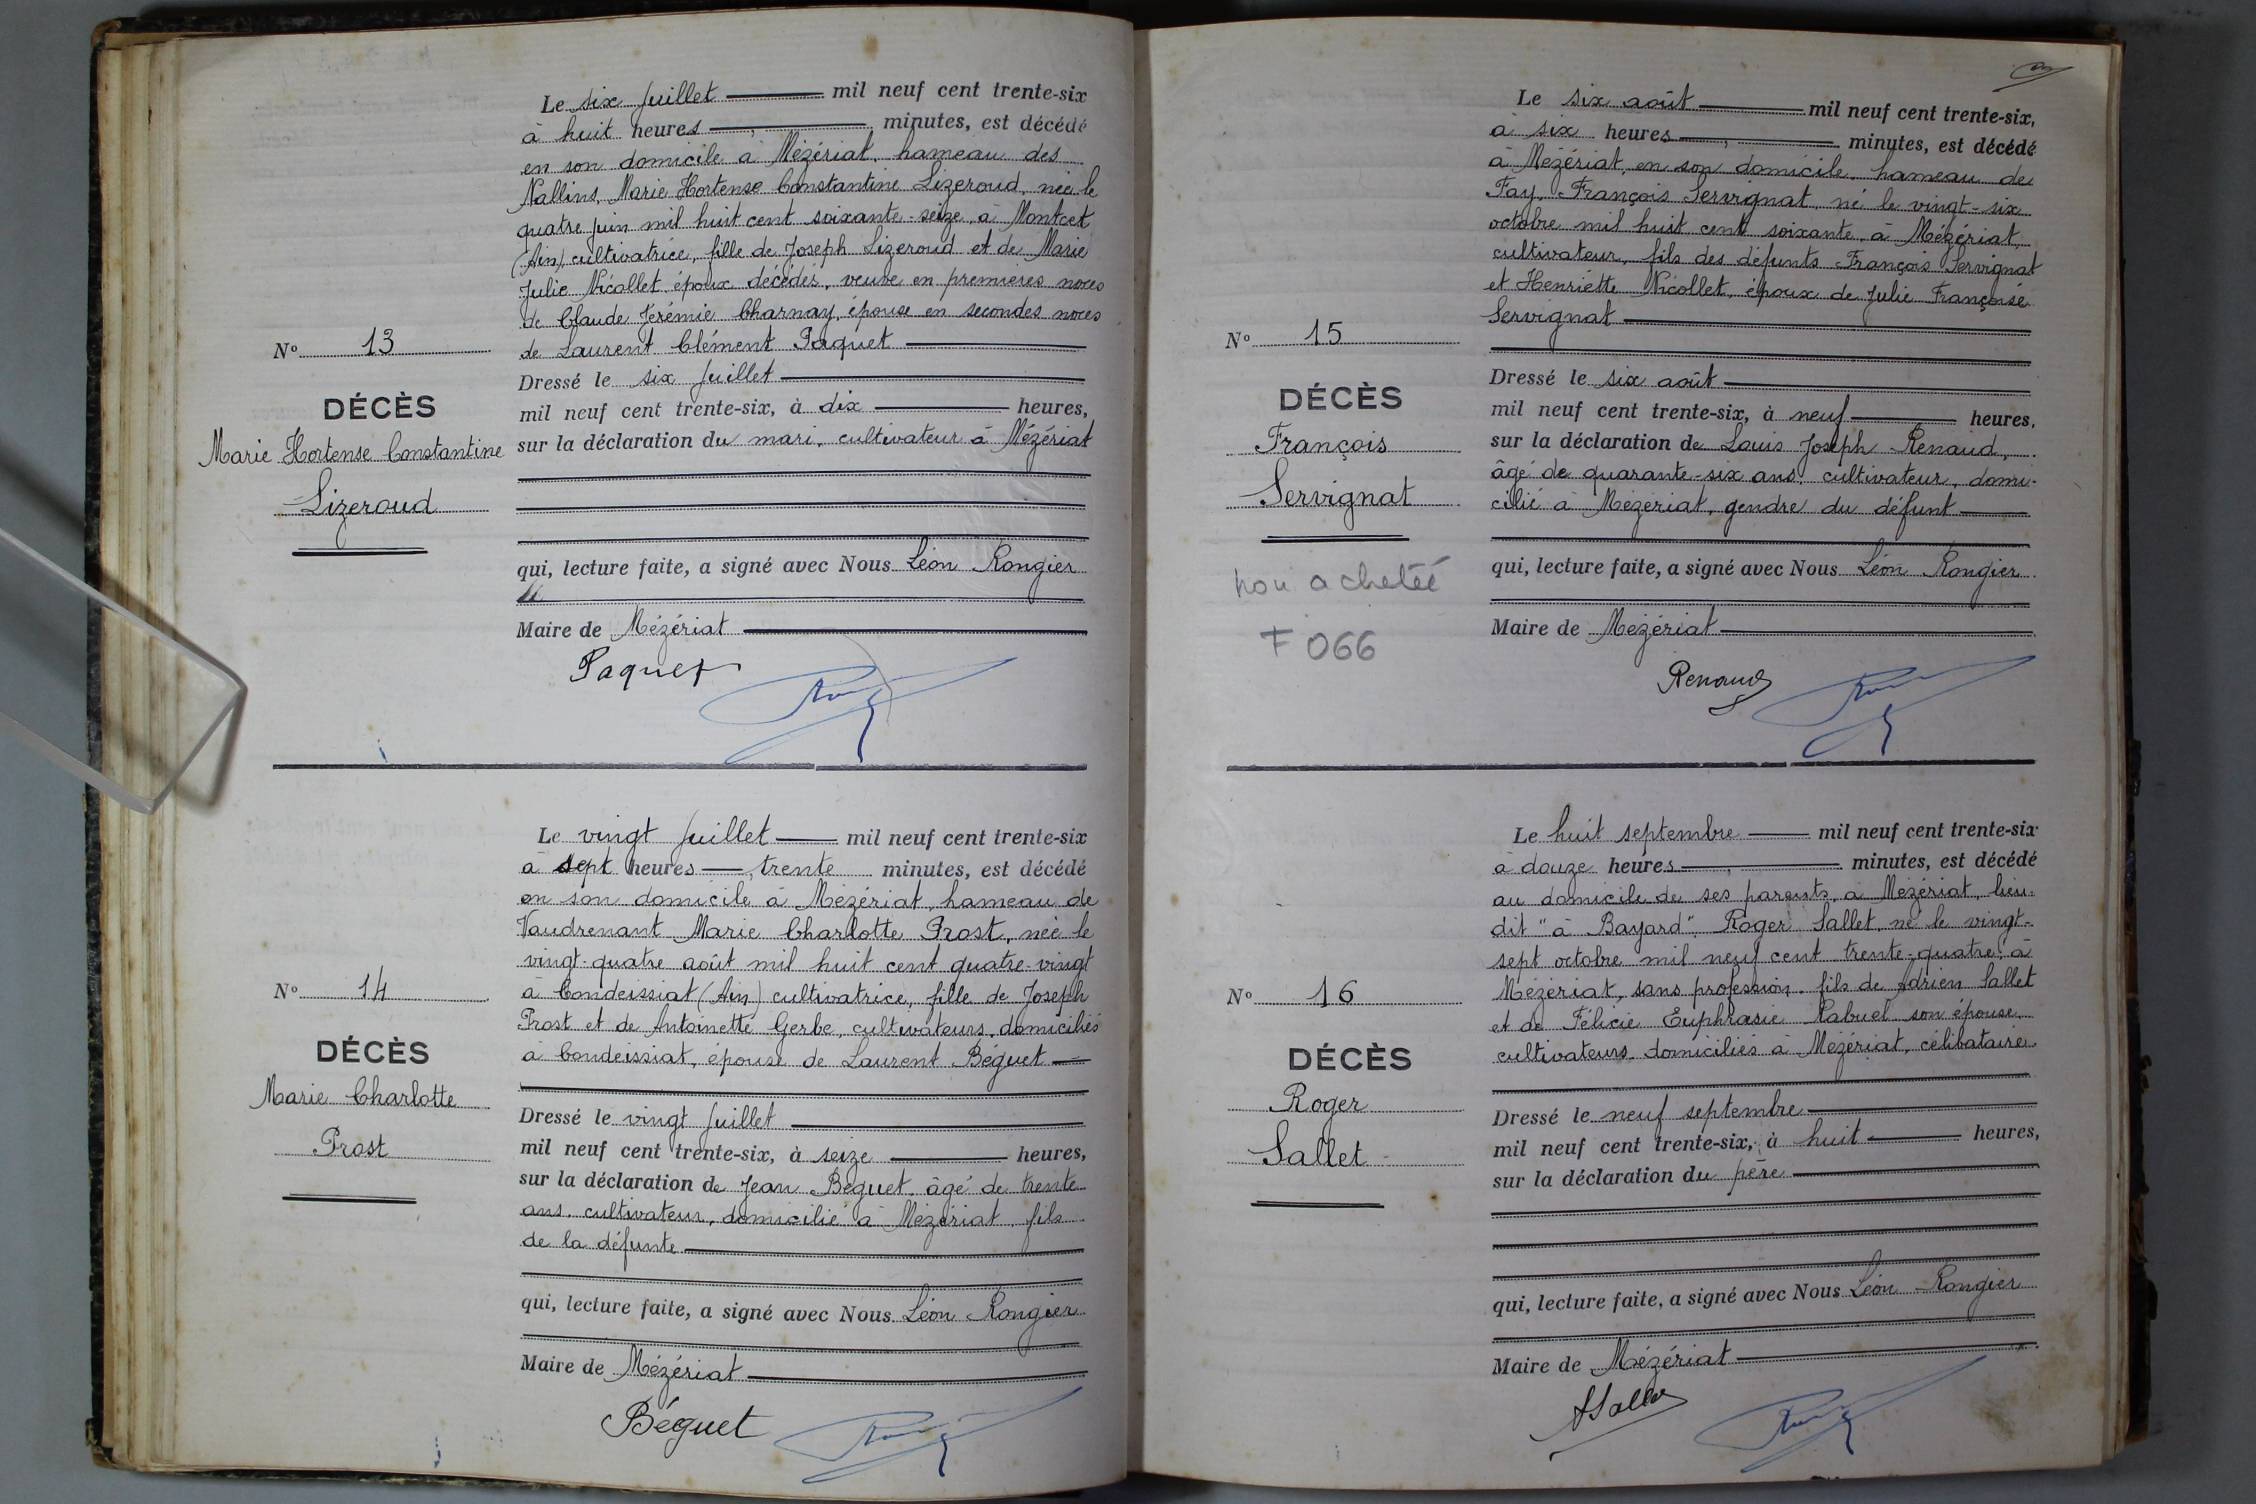 Le six Juillet mil neuf cent trente-six
à huit heures, minutes, est décédé
en son domicile à Mézériat, hameau des
Nallins, Marie Hortense Constantine Lizeroud, née le
quatre juin mil huit cent soixante-seize, à Montcet
(Ain) cultivatrice, fille de Joseph Lizeroud et de Marie
Julie Nicollet, époux décédés, veuve en premières noces
de Claude Jérémie Charnay, épouse en secondes noces
de Laurent Clément Paquet
Nº 13
DÉCÈS
Marie Hortense Constantine
Lizeroud
Dressé le six Juillet
mil neuf cent trente-six, à dix heures,
sur la déclaration du mari, cultivateur à Mézériat
qui, lecture faite, a signé avec Nous Léon Rongier
Maire de Mézériat
Paquet
Le vingt Juillet mil neuf cent trente-six
à sept heures, trente minutes, est décédé
en son domicile à Mézériat, hameau de
Vaudrenant Marie Charlotte Prost, née le
vingt-quatre août mil huit cent quatre-vingt
à Condeissiat (Ain) cultivatrice, fille de Joseph
Prost et de Antoinette Gerbe, cultivateurs, domiciliés
à Condeissiat, épouse de Laurent Béguet
Nº 14
DÉCÈS
Marie Charlotte
Prost
Dressé le vingt Juillet
mil neuf cent trente-six, à seize heures,
sur la déclaration de Jean Béguet, âgé de trente
ans, cultivateur, domicilié à Mézériat, fils
de la défunte
qui, lecture faite, a signé avec Nous Léon Rongier
Maire de Mézériat
Béguet
Le six août mil neuf cent trente-six,
à six heures, minutes, est décédé
à Mézériat, en son domicile, hameau de
Fay, François Servignat, né le vingt-six
octobre mil huit cent soixante, à Mézériat
cultivateur, fils des défunts François Servignat
et Henriette Nicollet, époux de Julie Françoise
Servignat
Nº 15
DÉCÈS
François
Servignat
non acheté
F 066
Dressé le six août
mil neuf cent trente-six, à neuf heures,
sur la déclaration de Louis Joseph Renaud,
âgé de quarante-six ans, cultivateur, domi-
cilié à Mézériat, gendre du défunt
qui, lecture faite, a signé avec Nous Léon Rongier
Maire de Mézériat
Renaud
Le huit septembre mil neuf cent trente-six
à douze heures, minutes, est décédé
au domicile de ses parents, à Mézériat, lieu-
dit "à Bayard", Roger Sallet, né le vingt-
sept octobre mil neuf cent trente-quatre, à
Mézériat, sans profession, fils de Adrien Sallet
et de Félicie Euphrasie Rabuel son épouse,
cultivateurs, domiciliés à Mézériat, célibataire
Nº 16
DÉCÈS
Roger
Sallet
Dressé le neuf septembre
mil neuf cent trente-six, à huit heures,
sur la déclaration du père
qui, lecture faite, a signé avec Nous Léon Rongier
Maire de Mézériat
ASallet